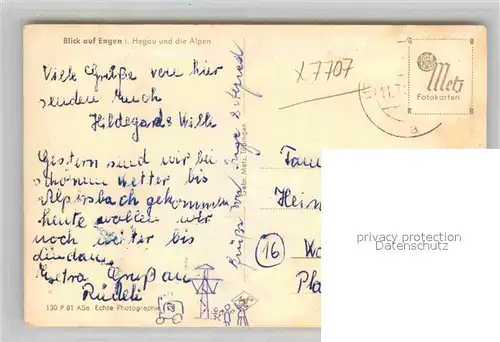 Blick auf Engen i. Hegau und die Alpen
Viele Grüße von hier
senden Euch
Hildegard & Willi
Gestern sind wir bei
schönem Wetter bis
Alpirsbach gekommen
heute wollen wir
noch weiter bis
Lindau.
Extra Gruß an
Rüdeli
130 P 81 ASe Echte Photographie
Grüße von Inge
Gebr. Metz, Tübingen
x7707
Metz
Fotokarten
11.7.
a
Hein
16
privacy protection
Datenschutz